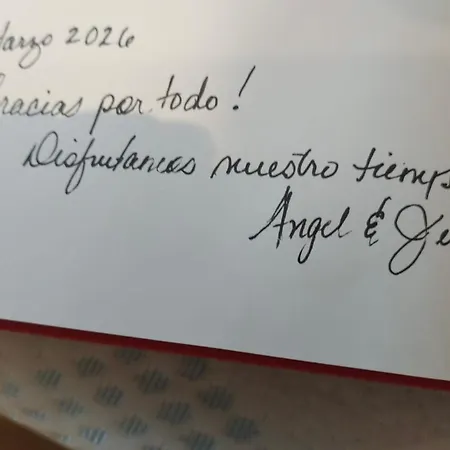 Marzo 2026
Gracias por todo!
Disfrutamos nuestro tiemp
Angel & Je